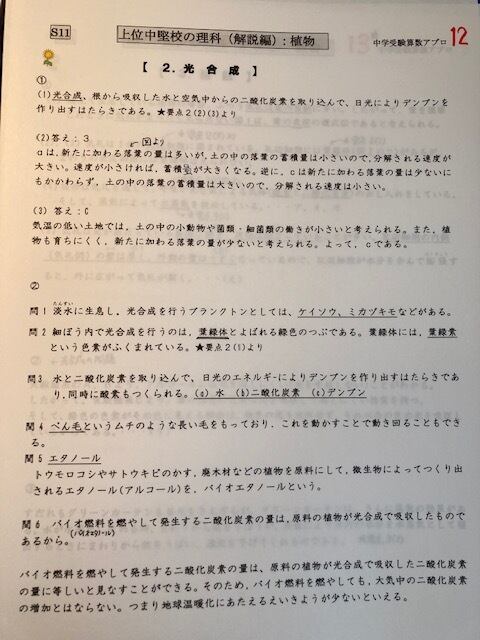 S11
上位中堅校の理科（解説編）：植物
中学受験算数アプロ
12
【 ２．光合成 】
①
(1)光合成、根から吸収した水と空気中からの二酸化炭素を取り込んで、日光によりデンプンを
作り出すはたらきである。★要点２(2)(3)より
(2)答え：３
図より
aは、新たに加わる落葉の量は多いが、土の中の落葉の蓄積量は小さいので、分解される速度が
大きい。速度が小さければ、蓄積量が大きくなる。逆に、cは新たに加わる落葉の量は少ないに
もかかわらず、土の中の落葉の蓄積量は大きいので、分解される速度は小さい。
(3) 答え：C
気温の低い土地では、土の中の小動物や菌類・細菌類の働きが小さいと考えられる。また、植
物も育ちにくく、新たに加わる落葉の量が少ないと考えられる。よって、cである。
②
たんすい
問1 淡水に生息し、光合成を行うプランクトンとしては、ケイソウ、ミカヅキモなどがある。
問2 細ぼう内で光合成を行うのは、葉緑体とよばれる緑色のつぶである。葉緑体には、葉緑素
という色素がふくまれている。★要点２(1)より
問3 水と二酸化炭素を取り込んで、日光のエネルギーによりデンプンを作り出すはたらきであ
り、同時に酸素もつくられる。(a) 水 (b)二酸化炭素 (c)デンプン
問4 べん毛というムチのような長い毛をもっており、これを動かすことで動き回ることもでき
る。
問5 エタノール
トウモロコシやサトウキビのかす、廃木材などの植物を原料にして、微生物によってつくり出
されるエタノール(アルコール)を、バイオエタノールという。
問6 バイオ燃料を燃やして発生する二酸化炭素の量は、原料の植物が光合成で吸収したもので
あるから。
(バイオエタノール)
バイオ燃料を燃やして発生する二酸化炭素の量は、原料の植物が光合成で吸収した二酸化炭素
の量に等しいと見なすことができる。そのため、バイオ燃料を燃やしても、大気中の二酸化炭素
の増加とはならない。つまり地球温暖化にあたえるえいきょうが少ないといえる。